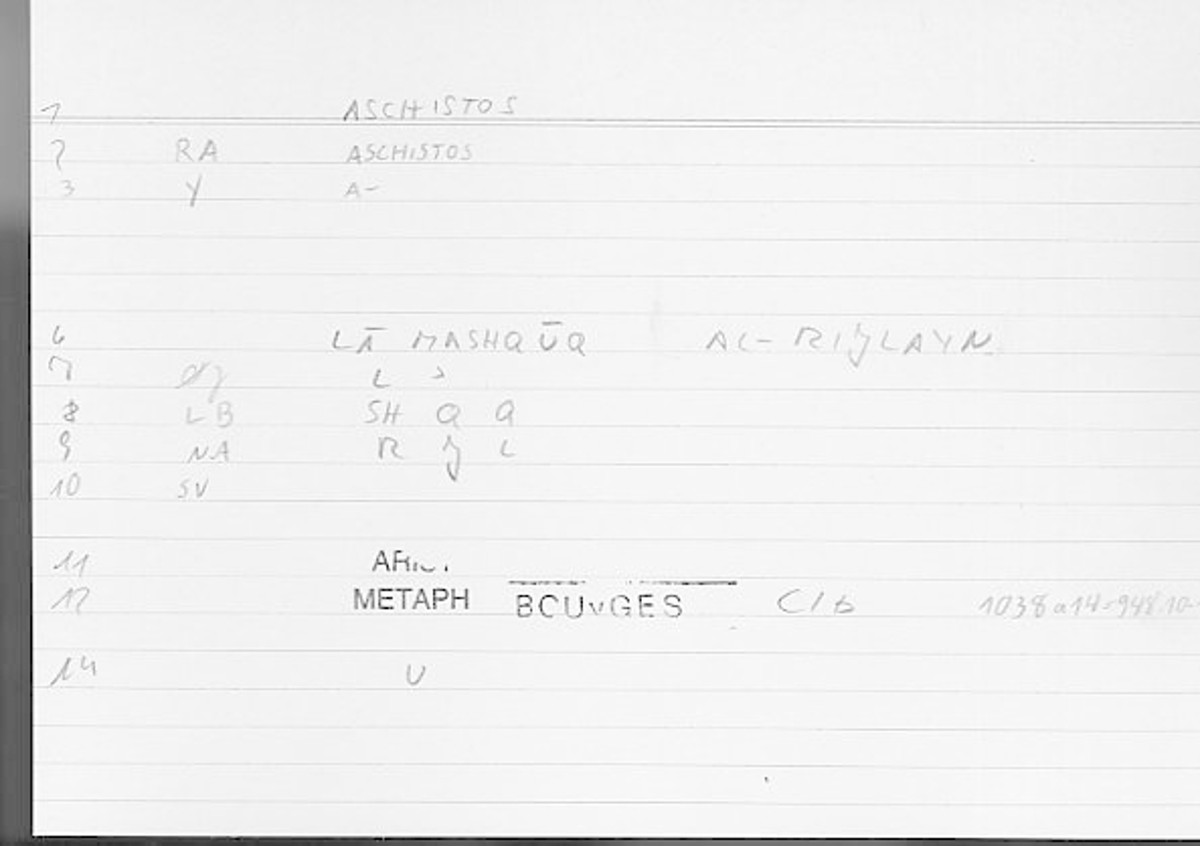 1 ASCHISTOS
2 RA ASCHISTOS
3 Y A-
6 LĀ MASHQŪQ AL-RIJLAYN
7 L ʾ
8 LB SH Q Q
9 NA R J L
10 SV
11
12 METAPH BOUYGES C/b 1038a14=948.10-
14 U